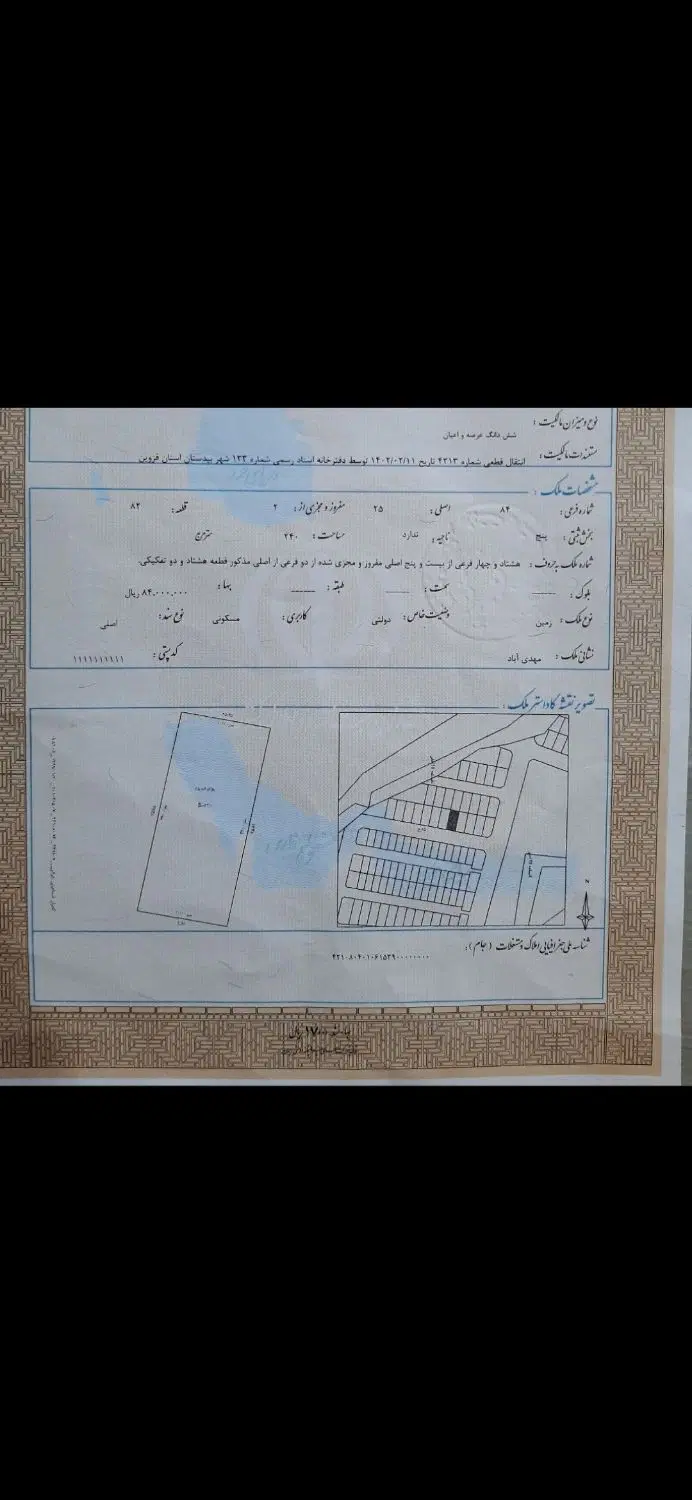 نوع و میزان مالکیت :
شش دانگ عرصه و اعیان
مستندات مالکیت : انتقال قطعی شماره ۴۲۱۳ تاریخ ۱۴۰۲/۰۲/۱۱ توسط دفترخانه اسناد رسمی شماره ۱۲۳ شهر بیدستان استان قزوین
مشخصات ملک :
شماره فرعی : ۸۴ اصلی : ۲۵ مفروز و مجزی از : ۲ قطعه : ۸۲
بخش ثبتی : پنج ناحیه : ندارد مساحت : ۲۴۰ مترمربع
شماره ملک به حروف : هشتاد و چهار فرعی از بیست و پنج اصلی مفروز و مجزی شده از دو فرعی از اصلی مذکور قطعه هشتاد و دو تفکیکی.
بلوک : ------ سمت : ------ طبقه : ------ بها : ۸۴،۰۰۰،۰۰۰ ریال
نوع ملک : زمین وضعیت خاص : دولتی کاربری : مسکونی نوع سند : اصلی
نشانی ملک : مهدی آباد کدپستی : ۱۱۱۱۱۱۱۱۱۱
تصویر نقشه کاداستر ملک :
N
شناسه ملی جغرافیایی املاک و مستغلات (جام) :